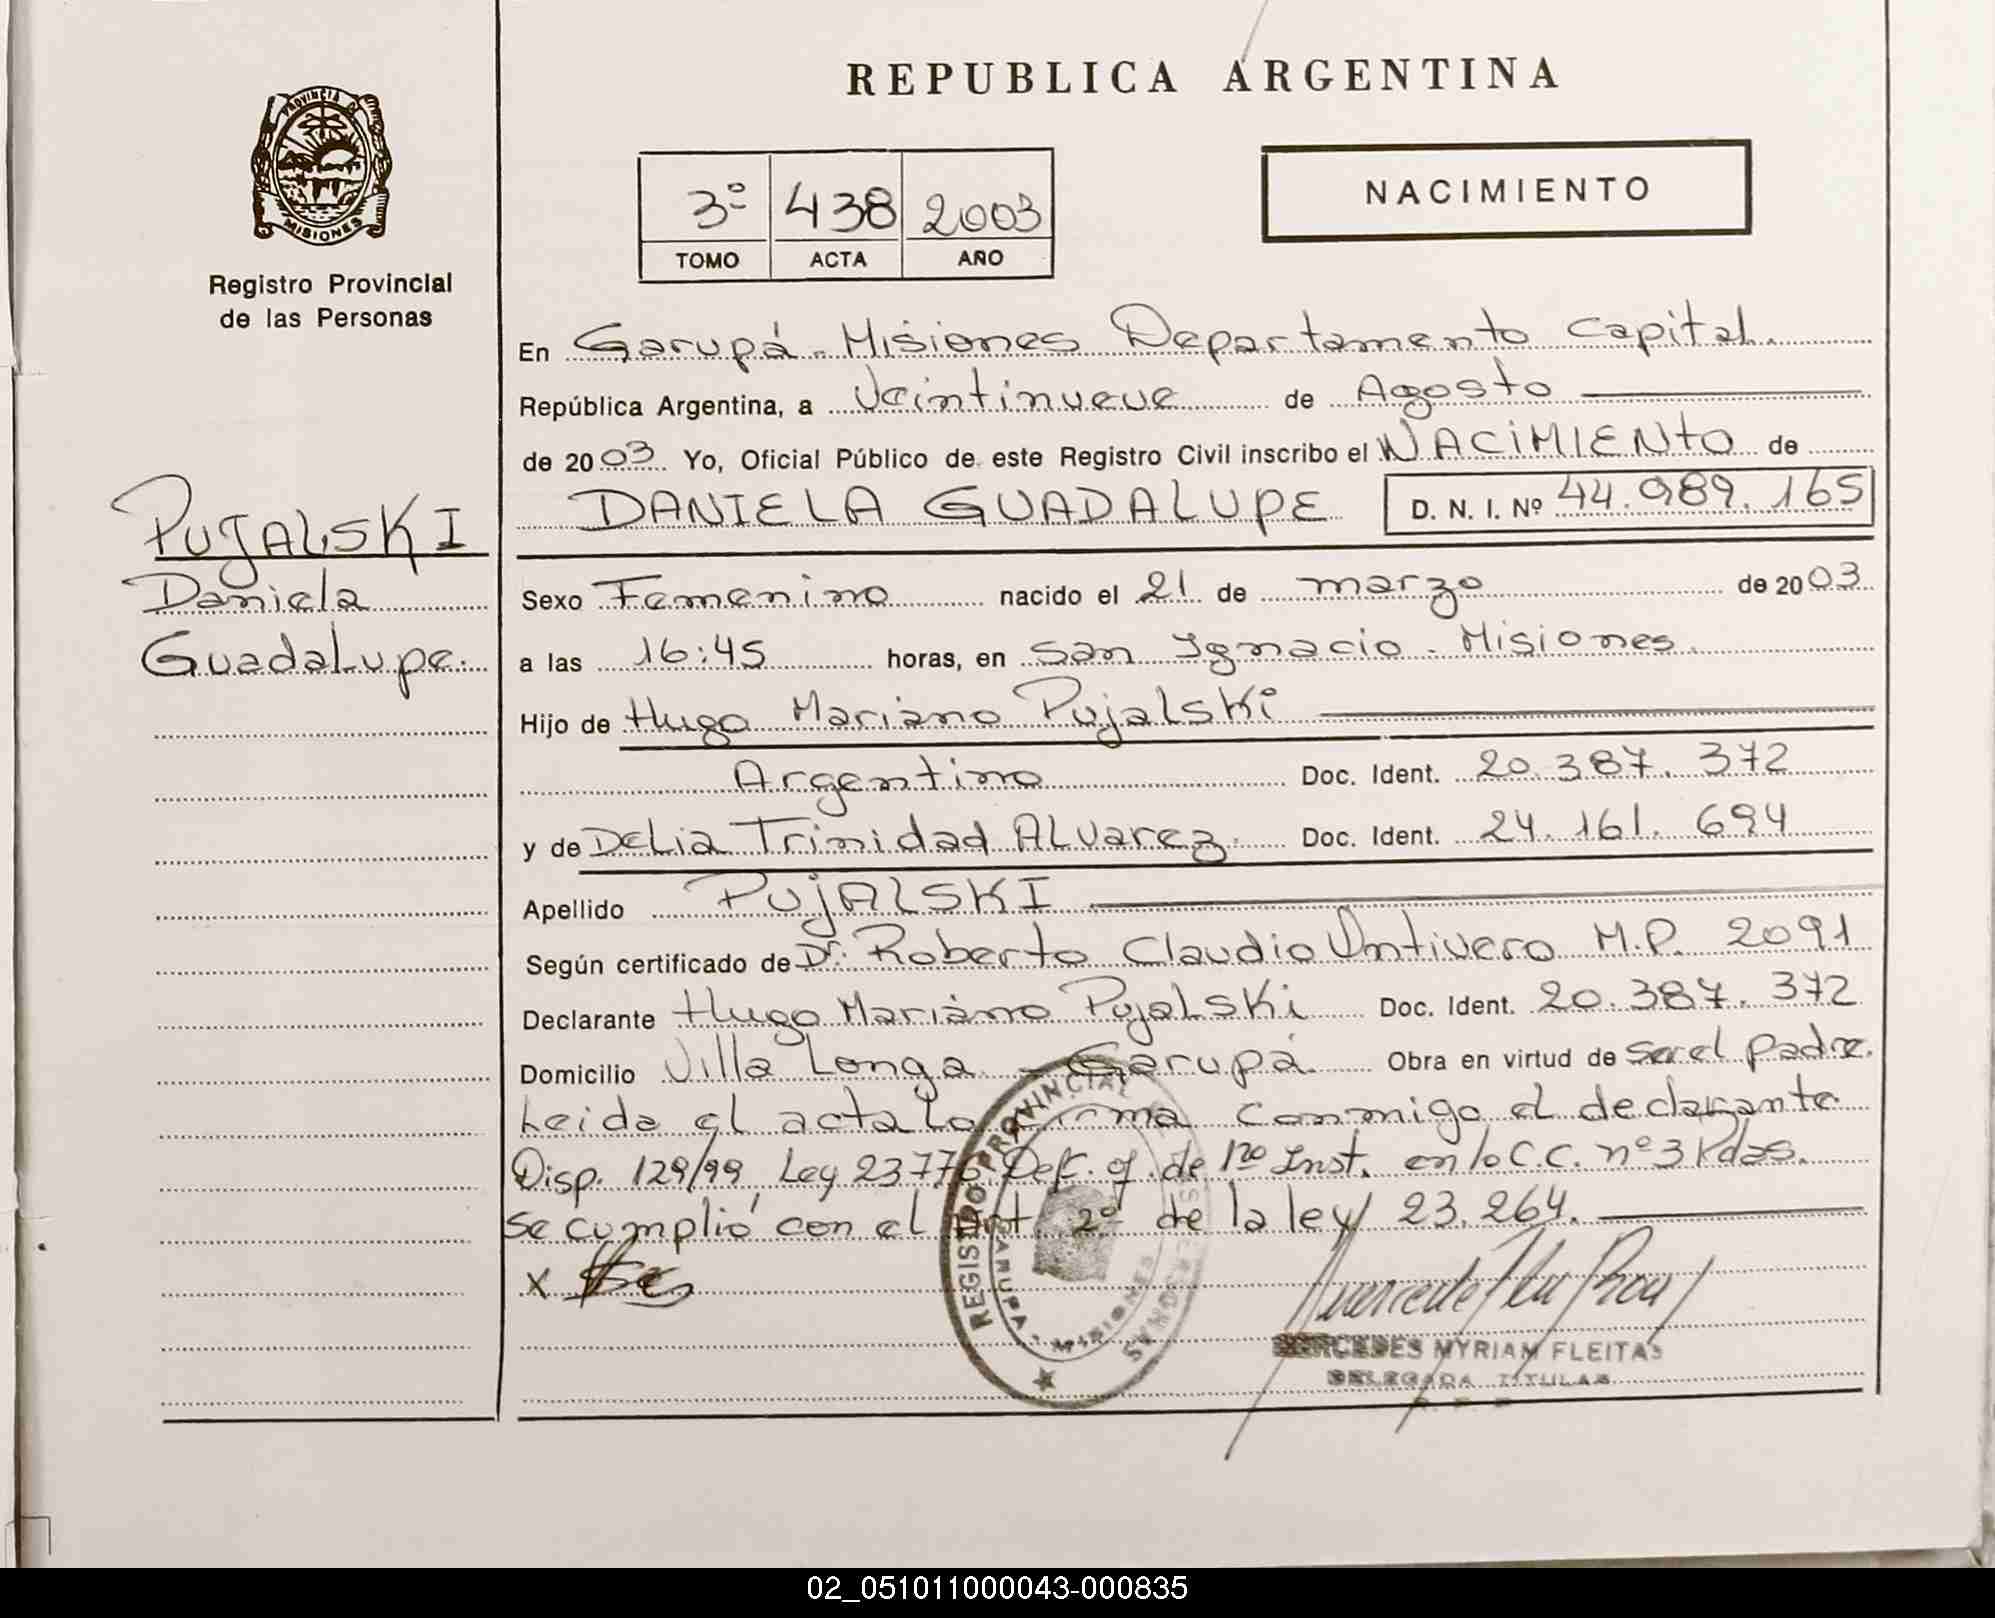 REPUBLICA ARGENTINA
PROVINCIA DE
MISIONES
Registro Provincial
de las Personas
3º 438 2003
TOMO ACTA AÑO
NACIMIENTO
En Garupá - Misiones Departamento Capital.
República Argentina, a Veintinueve de Agosto
de 2003 Yo, Oficial Público de este Registro Civil inscribo el NACIMIENTO de
DANIELA GUADALUPE D. N. I. Nº 44.989.165
PUJALSKI
Daniela
Guadalupe.
Sexo Femenino nacido el 21 de marzo de 2003
a las 16:45 horas, en San Ignacio - Misiones
Hijo de Hugo Mariano Pujalski
Argentino Doc. Ident. 20.387.372
y de Delia Trinidad Alvarez. Doc. Ident. 24.161.694
Apellido PUJALSKI
Según certificado de Dr. Roberto Claudio Ontivero M.P. 2091
Declarante Hugo Mariano Pujalski Doc. Ident. 20.387.372
Domicilio Villa Longa - Garupá. Obra en virtud de ser el padre.
Leida el acta la firma conmigo el declarante
Disp. 129/99 Ley 23776 Def. of. de 1ro Inst. en lo C.C. nº 3 Pdas.
Se cumplió con el Art. 2º de la ley 23.264.
X
REGISTRO PROVINCIAL DE LAS PERSONAS
GARUPA - MISIONES
MERCEDES MYRIAM FLEITAS
DELEGADA TITULAR
02_051011000043-000835